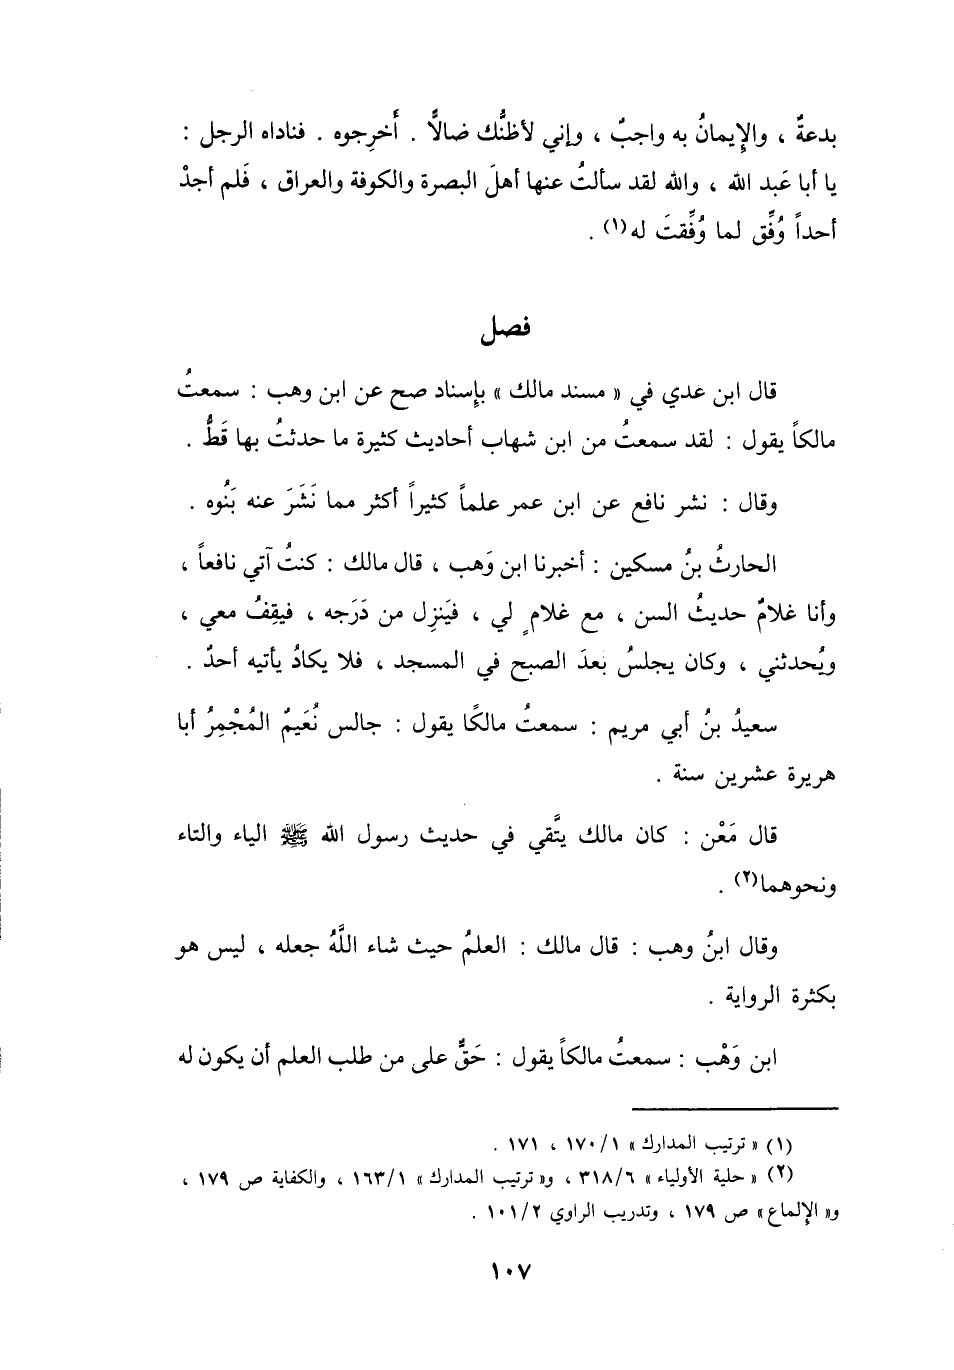 بدعةٌ ، والإِيمانُ به واجبٌ ، وإني لأظنُّك ضالاًّ . أَخرِجوه . فناداه الرجل :
يا أبا عَبد الله ، والله لقد سألتُ عنها أهلَ البصرة والكوفة والعراق ، فَلم أجدْ
أحداً وُفِّق لما وُفِّقتَ له(١) .
فصل
قال ابن عدي في « مسند مالك » بإِسناد صح عن ابن وهب : سمعتُ
مالكاً يقول : لقد سمعتُ من ابن شهاب أحاديث كثيرة ما حدثتُ بها قَطُّ .
وقال : نشر نافع عن ابن عمر علماً كثيراً أكثر مما نَشَرَ عنه بَنُوه .
الحارثُ بنُ مسكين : أخبرنا ابن وَهب ، قال مالك : كنتُ آتي نافعاً ،
وأنا غلامٌ حديثُ السن ، مع غلامٍ لي ، فيَنزِل من دَرَجه ، فيقِفُ معي ،
ويُحدثني ، وكان يجلسُ بعدَ الصبح في المسجد ، فلا يكادُ يأتيه أحدٌ .
سعيدُ بنُ أبي مريم : سمعتُ مالكًا يقول : جالس نُعَيمٌ المُجْمِرُ أبا
هريرة عشرين سنة .
قال مَعْن : كان مالك يتَّقي في حديث رسول الله ﷺ الياء والتاء
ونحوهما(٢) .
وقال ابنُ وهب : قال مالك : العلمُ حيث شاء اللَّهُ جعله ، ليس هو
بكثرة الرواية .
ابن وَهْب : سمعتُ مالكاً يقول : حَقٌّ على من طلب العلم أن يكون له
(١) « ترتيب المدارك » ١/١٧٠ ، ١٧١ .
(٢) « حلية الأولياء » ٣١٨/٦ ، و« ترتيب المدارك » ١/١٦٣ ، والكفاية ص ١٧٩ ،
و« الإِلماع » ص ١٧٩ ، وتدريب الراوي ١٠١/٢ .
١٠٧